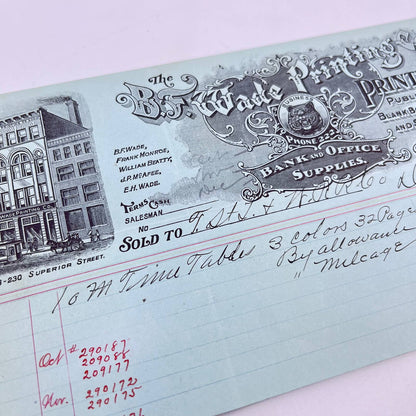 The
B.F. Wade Printing
PRIN
PUBL
BLANK B
AND B
BUSINESS
PHONE
BANK AND OFFICE
SUPPLIES.
B.F. WADE,
FRANK MONROE,
WILLIAM BEATTY,
J.R. McAFEE,
E.H. WADE.
TERMS CASH
SALESMAN
SOLD TO T. St. L. & W. R.R. Co
-230 SUPERIOR STREET.
10 M Time Tables 3 colors 32 Page
By allowance
" Mileage
Oct # 290187
209088
209177
Nov. 290172
290175